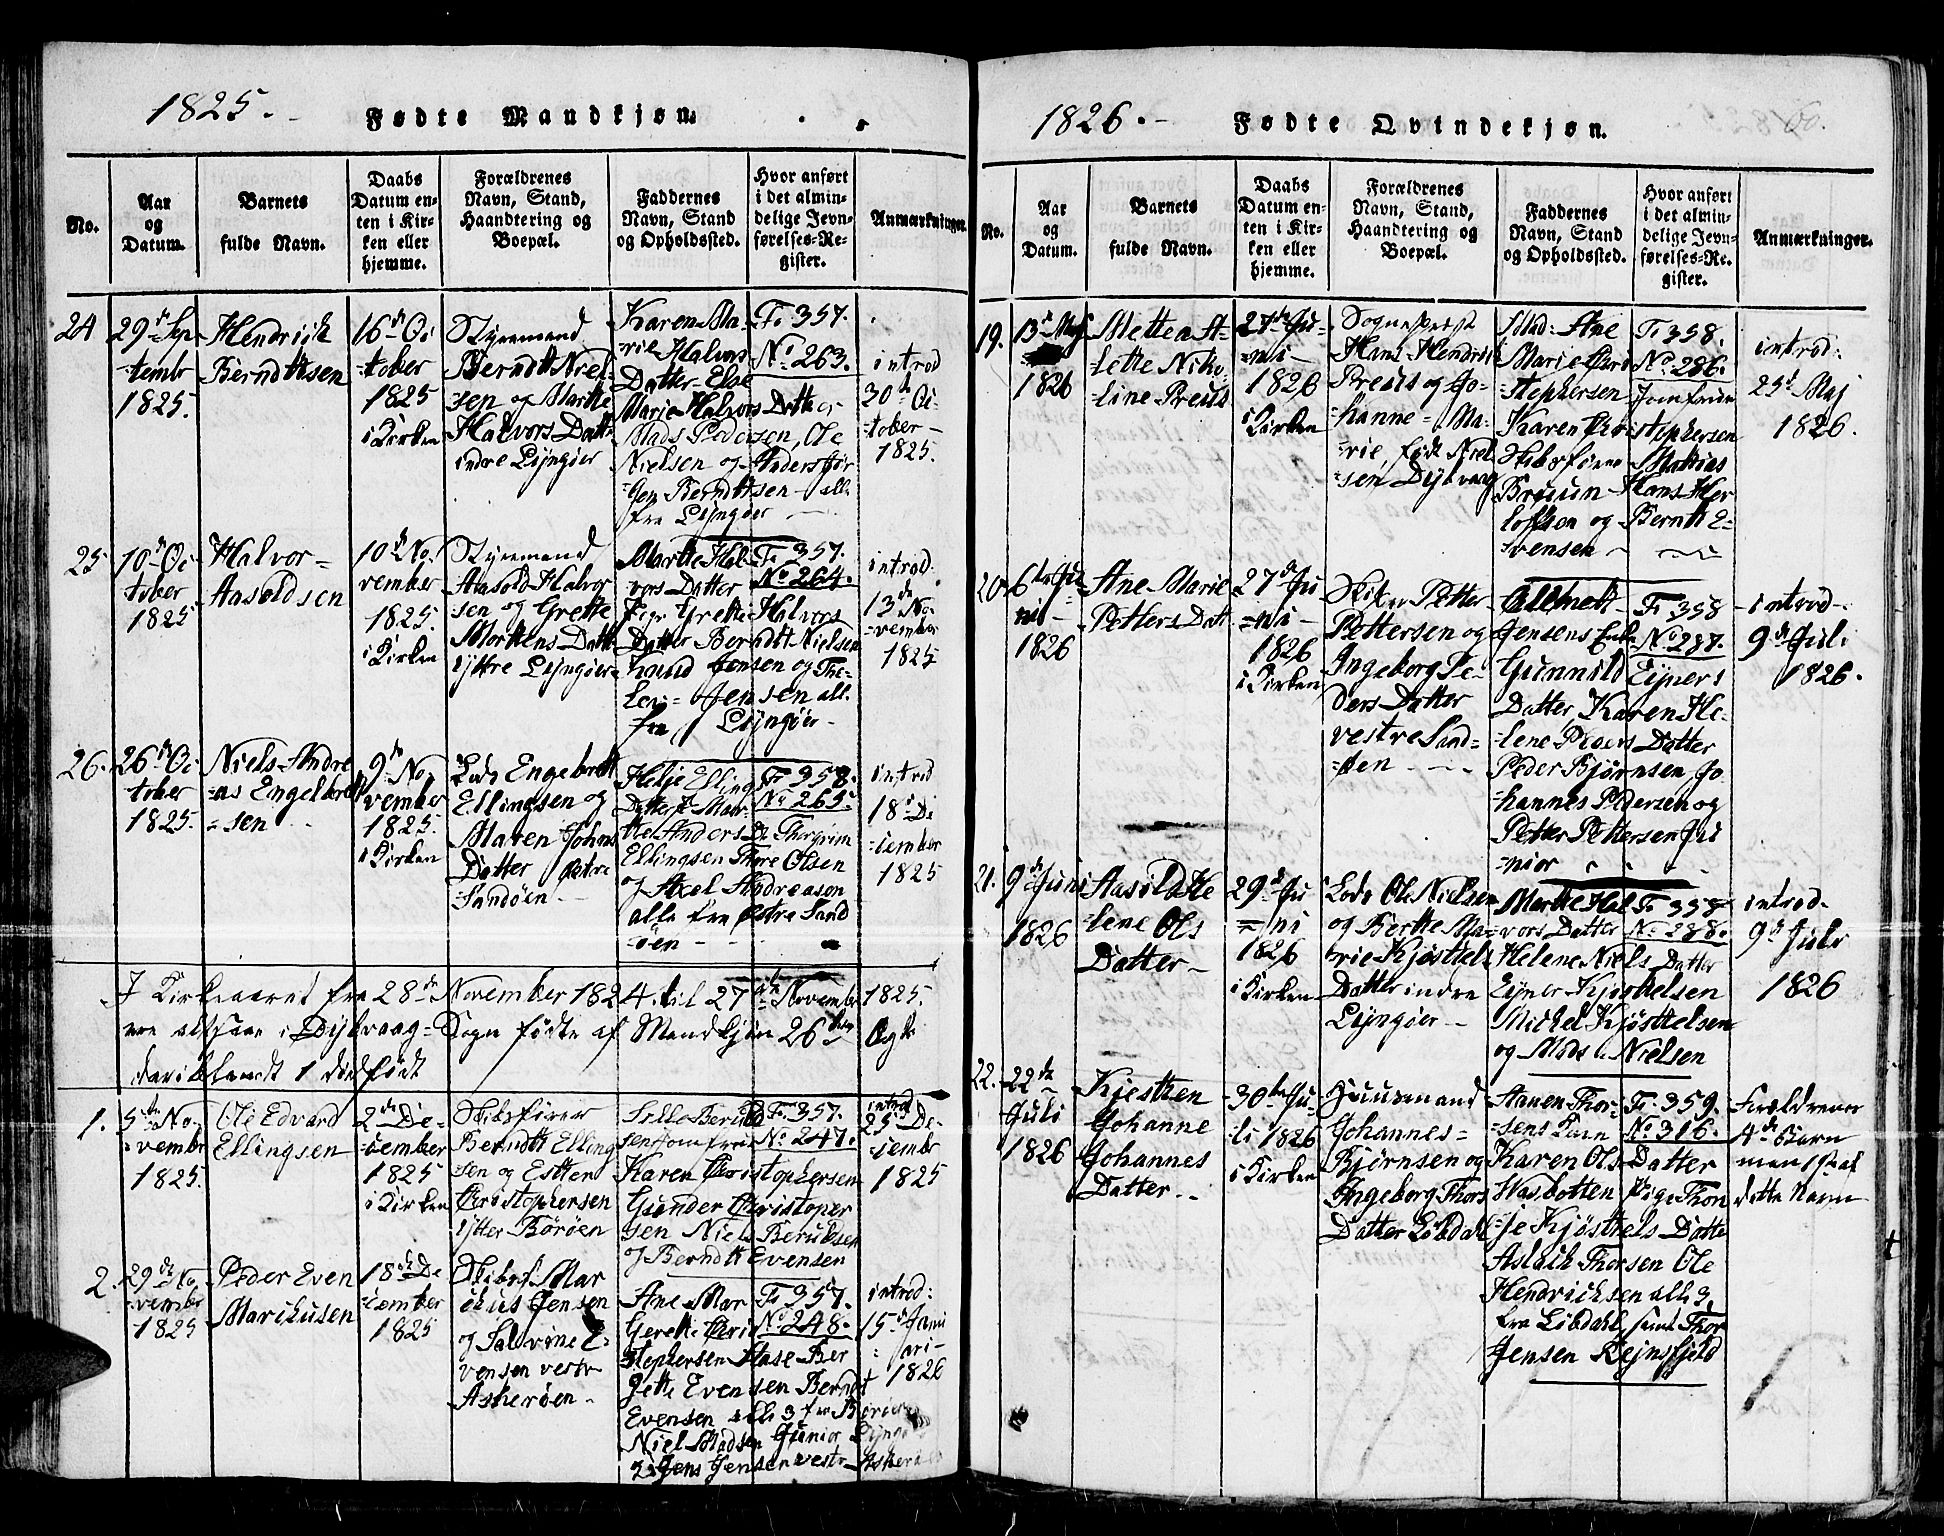 1825.
Fødte Mandkjøn.
No.
Aar
og
Datum.
Barnets
fulde Navn.
Daabs
Datum en-
ten i Kir-
ken eller
hjemme.
Forældrenes
Navn, Stand,
Haandtering og
Boepæl.
Faddernes
Navn, Stand
og Opholdssted.
Hvor anført
i det almin-
delige Jevn-
førelses-Re-
gister.
Anmærkninger.
24
29de Sep
-tembr
1825.
Hendrich
Berndttsen
16de Oc
-tober
1825
i Kirken
Styrmand
Berndt Niel-
-sen og Marthe
Halvors Datt
indre Lyngøer
Karen Ma-
rie Halvors
Datter Else
Marie Halvors Datter
Mads Pedersen, Ole
Nielsen og Anders Jør
-gen Berndttsen alle
fra Lyngøer
Fo 357.
No 263.
introd
30de Oc
-tober
1825.
25
10de Oc
tober
1825
Halvor
Aasoldsen
10de No
vember
1825.
i Kirken
Styrmand
Aasold Halvor
sen og Grethe
Mortens Datt
yttre Lyngøer
Marthe Hal-
vors Datter
Pige Grethe Halvors
Datter Berndt Nielsen
Jensen og The-
Jensen all.
fra Lyngøer
Fo 357.
No 264.
introd.
13de No
-vember
1825
26.
26de Oc
tober
1825.
Niels Andre
-as Engelbrett
-sen
9de No
vember
1825.
i Kirken
Lods Engebrett
Ellingsen og
Maren Johns
Datter Østre
Sandøen
Helje Ellings
Datter Mar-
the Anders Dr Thorgrim
Ellingsen Thore Olsen
og Axel Andreasen
alle fra Østre Sand
-øen
Fo 358.
No 265.
introd
18de De
-cember
1825
I Kirkeaaret fra 28de November 1824. til 27de November 1825.
ere altsaa i Dybvaag-Sogn fødte af Mandkjøn 26
deriblandt 1 dødfødt
1.
5te No-
vembr
1825.
Ole Edvard
Ellingsen
2de De-
-cember
1825
i Kirken
Skibsfører
Berndt Elling
sen og Esther
Christophersen
ytter Børøen
Karen Christophersen
Gunder Christopher
sen Niels
og Berndt Evensen
Fo 357.
No 247.
introd
25de De-
-cembr
1825
2.
29de No
-vember
1825
Peder Even
Marchusen
18de De
-cember
1825
Skibsf Mar
chus Jensen
og Salvine E-
vensen vestr
Askerøen
Ane Mar
Grethe Chri
stephersen Aase Ber
gette Evensen Berndt
Evensen alle 3 fra Børøe
Niel Madsen Junior Lyngø
og Jens Jensen vestr Askerøe
Fo 357.
No 248.
introd:
15de Janu
ari-
1826
1826.
60.
Fødte Qvindekjøn.
No.
Aar
og
Datum.
Barnets
fulde Navn.
Daabs
Datum en-
ten i Kir-
ken eller
hjemme.
Forældrenes
Navn, Stand,
Haandtering og
Boepæl.
Faddernes
Navn, Stand
og Opholdssted.
Hvor anført
i det almin-
delige Jevn-
førelses-Re-
gister.
Anmærkninger.
19.
13de Maj
1826
Metten A-
lette Niko
line Preus
27de Ju-
-ni-
1826
i Kirken
Sognepræst
Hans Hendrik
Preus og Jo-
hanne Ma-
rie født Niel
sen Dybvaag
Mad: Ane
Marie Chri
stephersen
Karen Christephersen
Skibsfører Mathias
Bruun Hans Her
lofsen og Bernth E-
vensen
Fo 358.
No 286.
Jomfrue
introd:
25de Maj
1826.
20.
6te Ju
ni-
1826
Ane Marie
Petters Datt
27de Ju
-ni-
1826
i Kirken
Skiper Petter
Pettersen og
Ingeborg Pe-
ders Datter
vestre Sand-
øen
Jensens Enke
Gunnild Eyners
Datter Karen He-
lene Peders Datter
Peder Bjørnsen Jo
hannes Pedersen og
Petter Pettersen Ju
nior
Fo 358
No 287.
introd
9de Juli
1826.
21.
9de Juni
1826
Aasild He
lene Ols
Datter
29de Ju
-ni
1826
i Kirken
Lods Ole Nielsen
og Berthe Ma-
rie Kjøsttels
Datter indre
Lyngøer
Marthe Hal
vors Datter
Helene Niels Datter
Eyner Kjøstelsen
Michel Kjøsttelsen
og Mads Nielsen
Fo 358
No 288.
introd.
9de Juli
1826
22.
22de
Juli
1826
Kjesthen
Johanne
Johannes
Datter
30te Ju-
-li 1826
i Kirken
Huusmand
Johannes
Bjørnsen og
Ingeborg Thors
Datter Løbdal
Aanen Thor-
sens
Karen Ols Datter
Wasbotten Pige Thon
je Kjøsttels Datte
Aslach Thorsen Ole
Hendrichsen alle 3
fra Løbdahl, samt Thor
Jensen Rejnsfjeld
Fo 359.
No 316.
Forældrenes
4de Barn
man skal
dette Navn